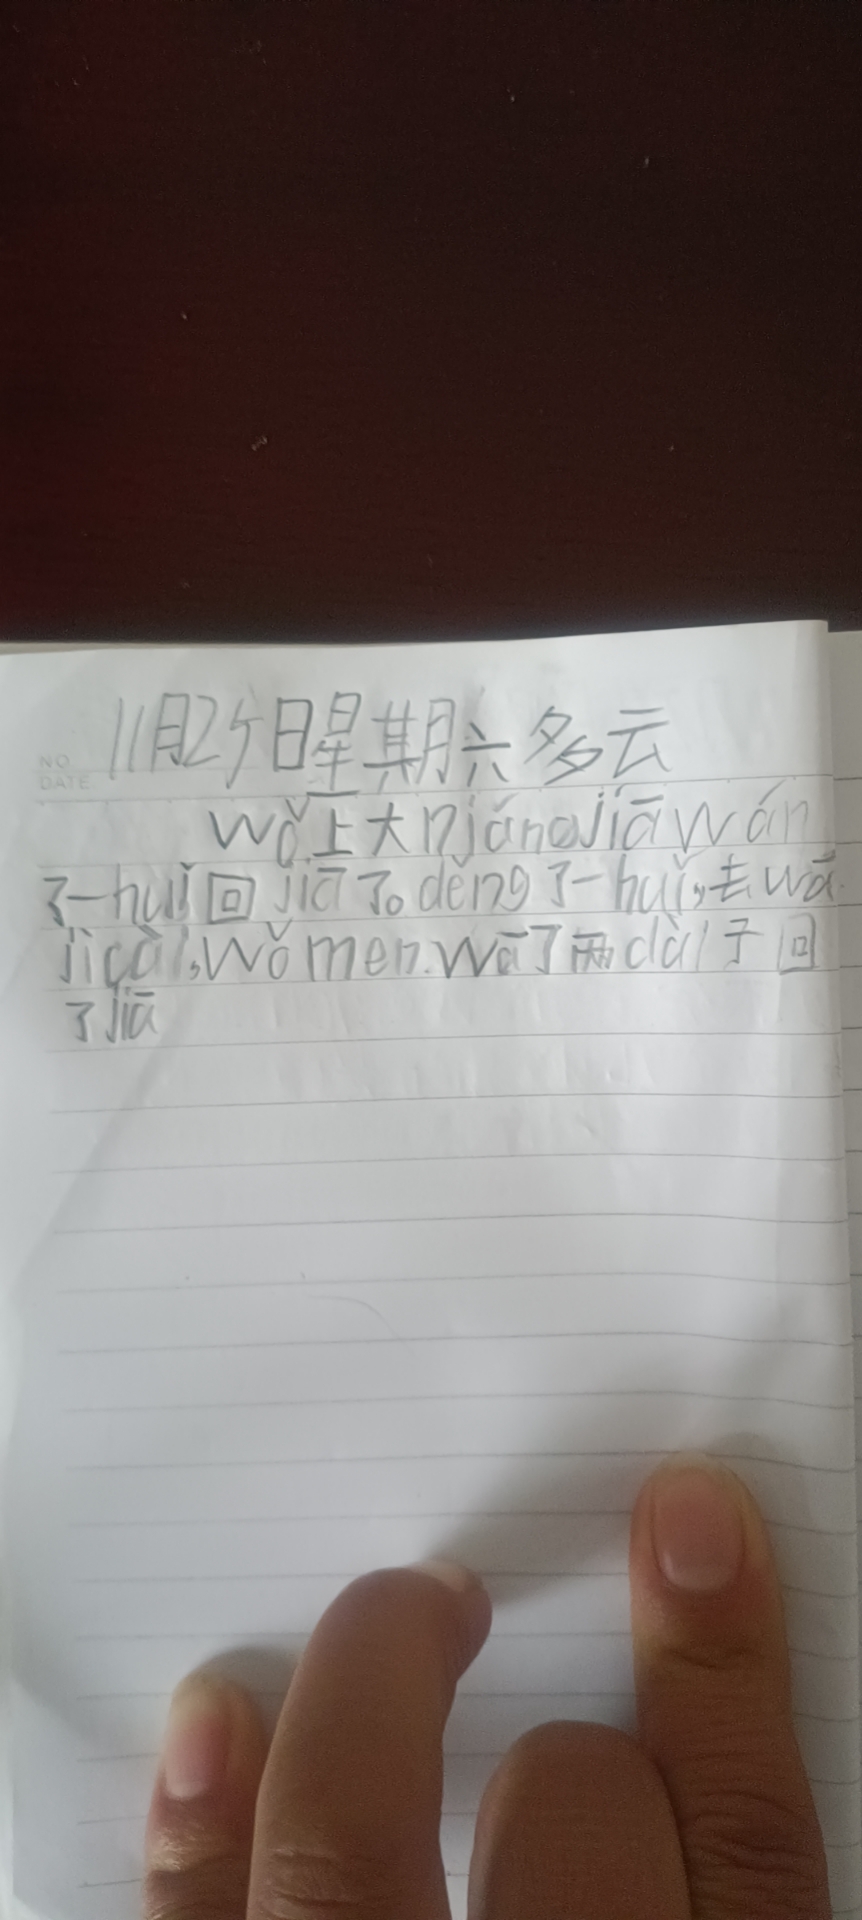 NO
DATE
11月25日星期六多云
wǒ上大niánɡjiāwán
了一huǐ回jiā了。děng了一huǐ,去wā
jìcài,wǒmen.wā了两dài子回
了jiā